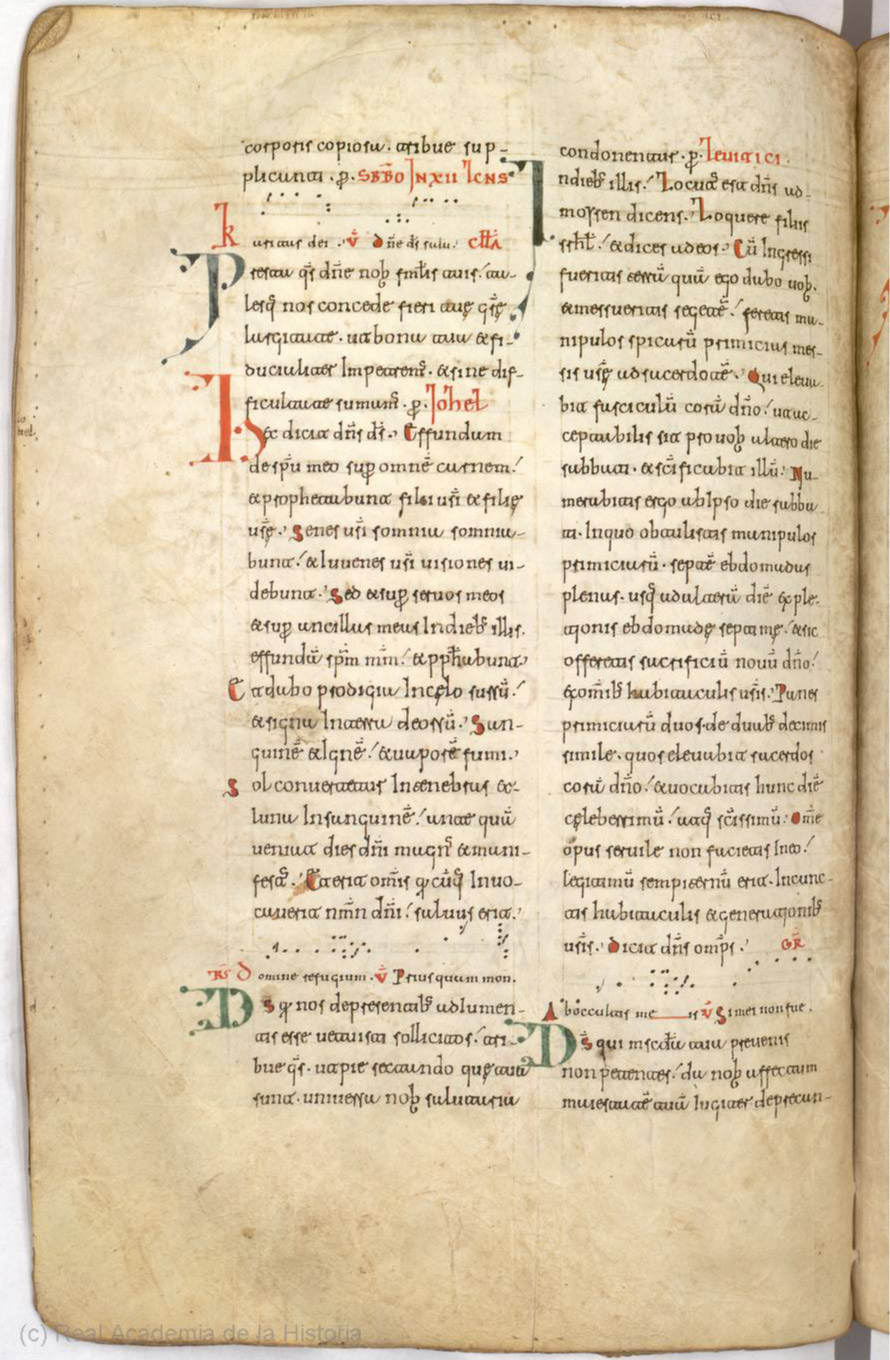 corporis copiosa. tribue sup-
plicanti. p. SBBO IN XII LCNS
Karitas dei. v dne ds salu. clla
Presta qs dne nob fmlis tuis. ta-
lesq nos concede fieri tue gre
largitati. ut bona tua & fi-
ducialiter Impetrem. & sine dif-
ficultate sumam. p. Iohel
Hec dicit dns ds. Effundam
de spu meo sup omne carnem.
& prophetabunt filii uri & filie
ure. Senes uri somnia somnia-
bunt. & Iuuenes uri uisiones ui-
debunt. Sed & sup seruos meos
& sup ancillas meas Indieb illis.
effunda spm mm. & pphabunt.
Et dabo prodigia Incelo sursu.
& signa Interra deorsu. San-
guine & Igne. & uapore fumi.
Sol conuertetur Intenebras &
luna Insanguine. antequa
ueniat dies dni magn & mani-
fest. Et erit omis q cuq Inuo-
cauerit nmn dni. saluus erit.
RS Domine refugium. v Priusquam mon.
Ds q nos depresentib adiumen-
tis esse uetuisti sollicitos. tri-
bue qs. ut pie sectando que tua
sunt. uniuersa nob salutaria
condonentur. p. Leuitici.
Indieb illis. Locut est dns ad
moysen dicens. Loquere filiis
srhl. & dices ad eos. Cu Ingressi
fueritis terra qua ego dabo uob.
& messueritis segete. feretis ma-
nipulos spicaru primicias mes-
sis ure ad sacerdote. Qui eleua-
bit fasciculu cora dno. ut ac-
ceptabilis sit pro uob altero die
sabbati. & scificabit illu. Nu-
merabitis ergo ab Ipso die sabba-
ti. Inquo obtulistis manipulos
primiciaru. septe ebdomadas
plenas. usq ad altera die exple-
tionis ebdomade septime. & sic
offeretis sacrificiu nouu dno.
ex omib habitaculis uris. Panes
primiciaru duos. de duab decimis
simile. quos eleuabit sacerdos
cora dno. & uocabitis hunc die
celeberrimu. atq scissimu. Ome
opus seruile non facietis Ineo.
legitimu sempiternu erit. Incunc-
tis habitaculis & generationib
uris. Dicit dns omps. GR
Ab occultis me is v Si mei non fue.
Ds qui miscda tua preuenis
non petentes. da nob affectum
maiestate tua Iugiter deprecan-